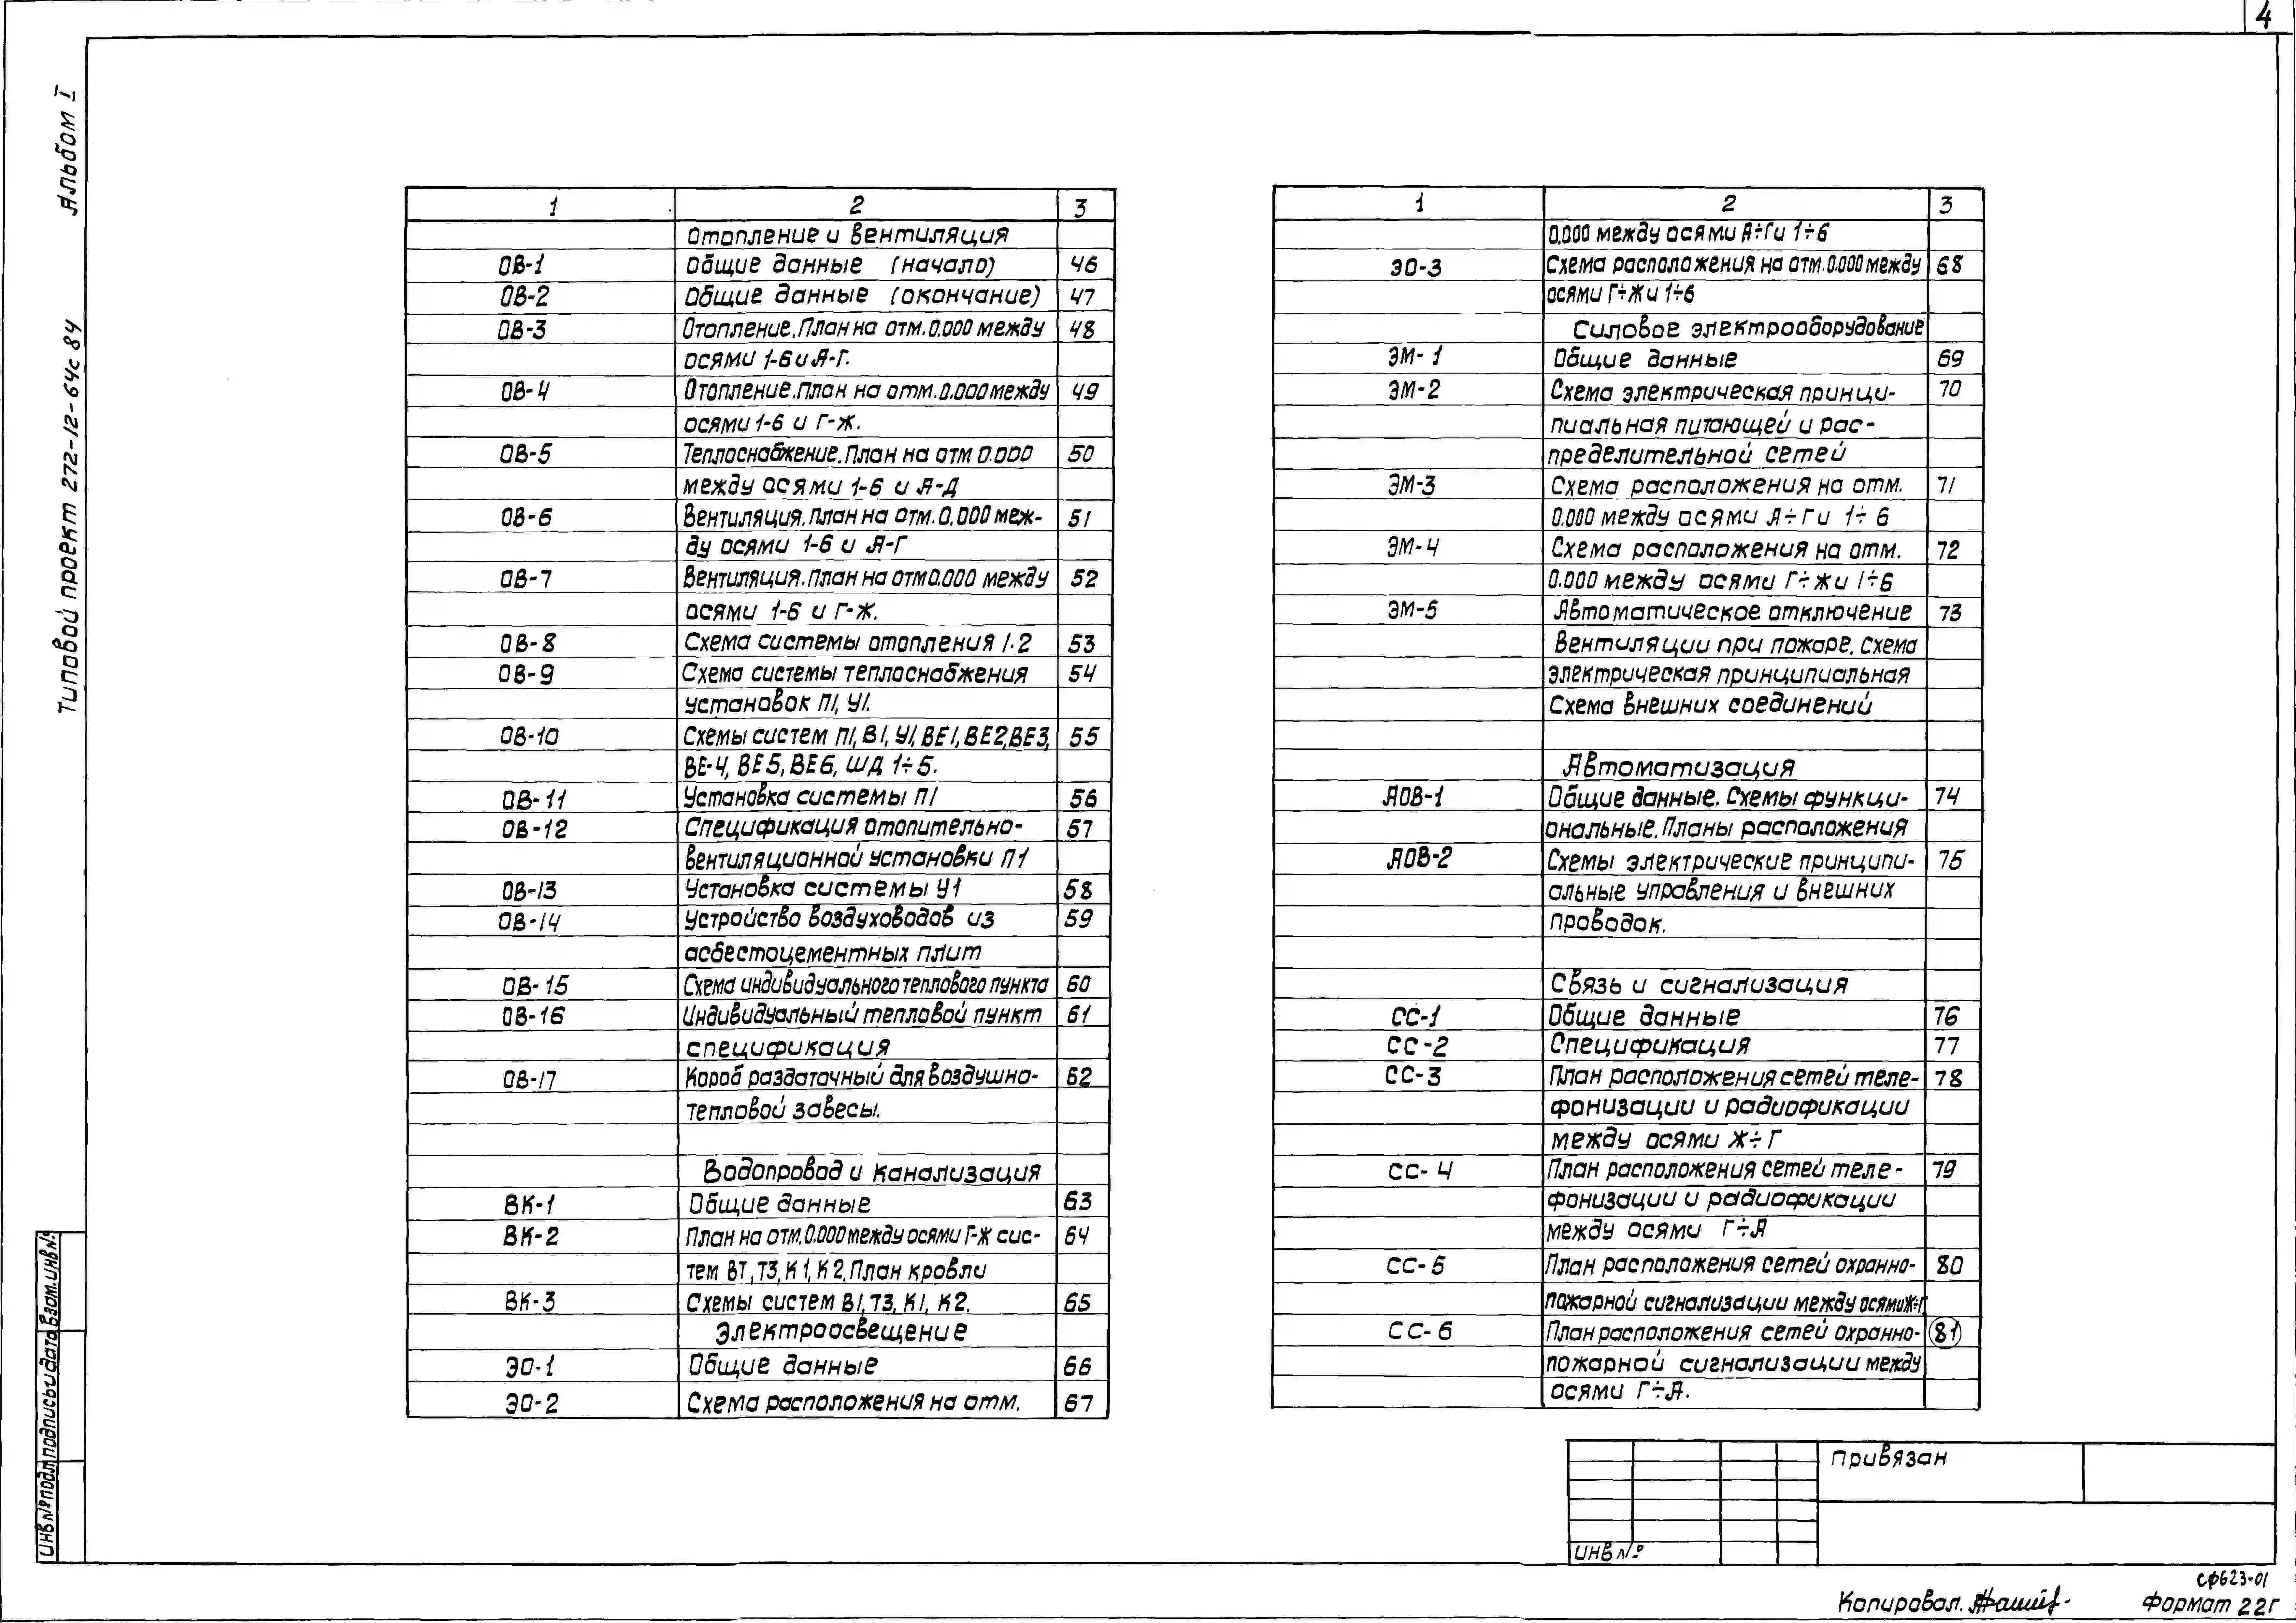 4
Альбом I
Типовой проект 272-12-64с 84
1 2 3
Отопление и вентиляция
ОВ-1 Общие данные (начало) 46
ОВ-2 Общие данные (окончание) 47
ОВ-3 Отопление. План на отм. 0.000 между 48
осями 1-6 и А-Г.
ОВ-4 Отопление. План на отм. 0.000 между 49
осями 1-6 и Г-Ж.
ОВ-5 Теплоснабжение. План на отм 0.000 50
между осями 1-6 и А-Д
ОВ-6 Вентиляция. План на отм. 0.000 меж- 51
ду осями 1-6 и А-Г
ОВ-7 Вентиляция. План на отм 0.000 между 52
осями 1-6 и Г-Ж.
ОВ-8 Схема системы отопления 1.2 53
ОВ-9 Схема системы теплоснабжения 54
установок П1, У1.
ОВ-10 Схемы систем П1, В1, У1, ВЕ1, ВЕ2, ВЕ3, 55
ВЕ-4, ВЕ5, ВЕ6, ШД 1÷5.
ОВ-11 Установка системы П1 56
ОВ-12 Спецификация отопительно- 57
вентиляционной установки П1
ОВ-13 Установка системы У1 58
ОВ-14 Устройство воздуховодов из 59
асбестоцементных плит
ОВ-15 Схема индивидуального теплового пункта 60
ОВ-16 Индивидуальный тепловой пункт 61
спецификация
ОВ-17 Короб раздаточный для воздушно- 62
тепловой завесы.
Водопровод и канализация
ВК-1 Общие данные 63
ВК-2 План на отм. 0.000 между осями Г-Ж сис- 64
тем В1, Т3, К1, К2. План кровли
ВК-3 Схемы систем В1, Т3, К1, К2. 65
Электроосвещение
ЭО-1 Общие данные 66
ЭО-2 Схема расположения на отм. 67
1 2 3
0.000 между осями А÷Г и 1÷6
ЭО-3 Схема расположения на отм. 0.000 между 68
осями Г÷Ж и 1÷6
Силовое электрооборудование
ЭМ-1 Общие данные 69
ЭМ-2 Схема электрическая принци- 70
пиальная питающей и рас-
пределительной сетей
ЭМ-3 Схема расположения на отм. 71
0.000 между осями А÷Г и 1÷6
ЭМ-4 Схема расположения на отм. 72
0.000 между осями Г÷Ж и 1÷6
ЭМ-5 Автоматическое отключение 73
вентиляции при пожаре. Схема
электрическая принципиальная
Схема внешних соединений
Автоматизация
АОВ-1 Общие данные. Схемы функци- 74
ональные. Планы расположения
АОВ-2 Схемы электрические принципи- 75
альные управления и внешних
проводок.
Связь и сигнализация
СС-1 Общие данные 76
СС-2 Спецификация 77
СС-3 План расположения сетей теле- 78
фонизации и радиофикации
между осями Ж÷Г
СС-4 План расположения сетей теле- 79
фонизации и радиофикации
между осями Г÷А
СС-5 План расположения сетей охранно- 80
пожарной сигнализации между осями Ж÷Г
СС-6 План расположения сетей охранно- 81
пожарной сигнализации между
осями Г÷А.
Взам. инв №
Подпись и дата
Инв № подл
Привязан
Инв №
СФ623-01
Копировал.
Формат 22Г